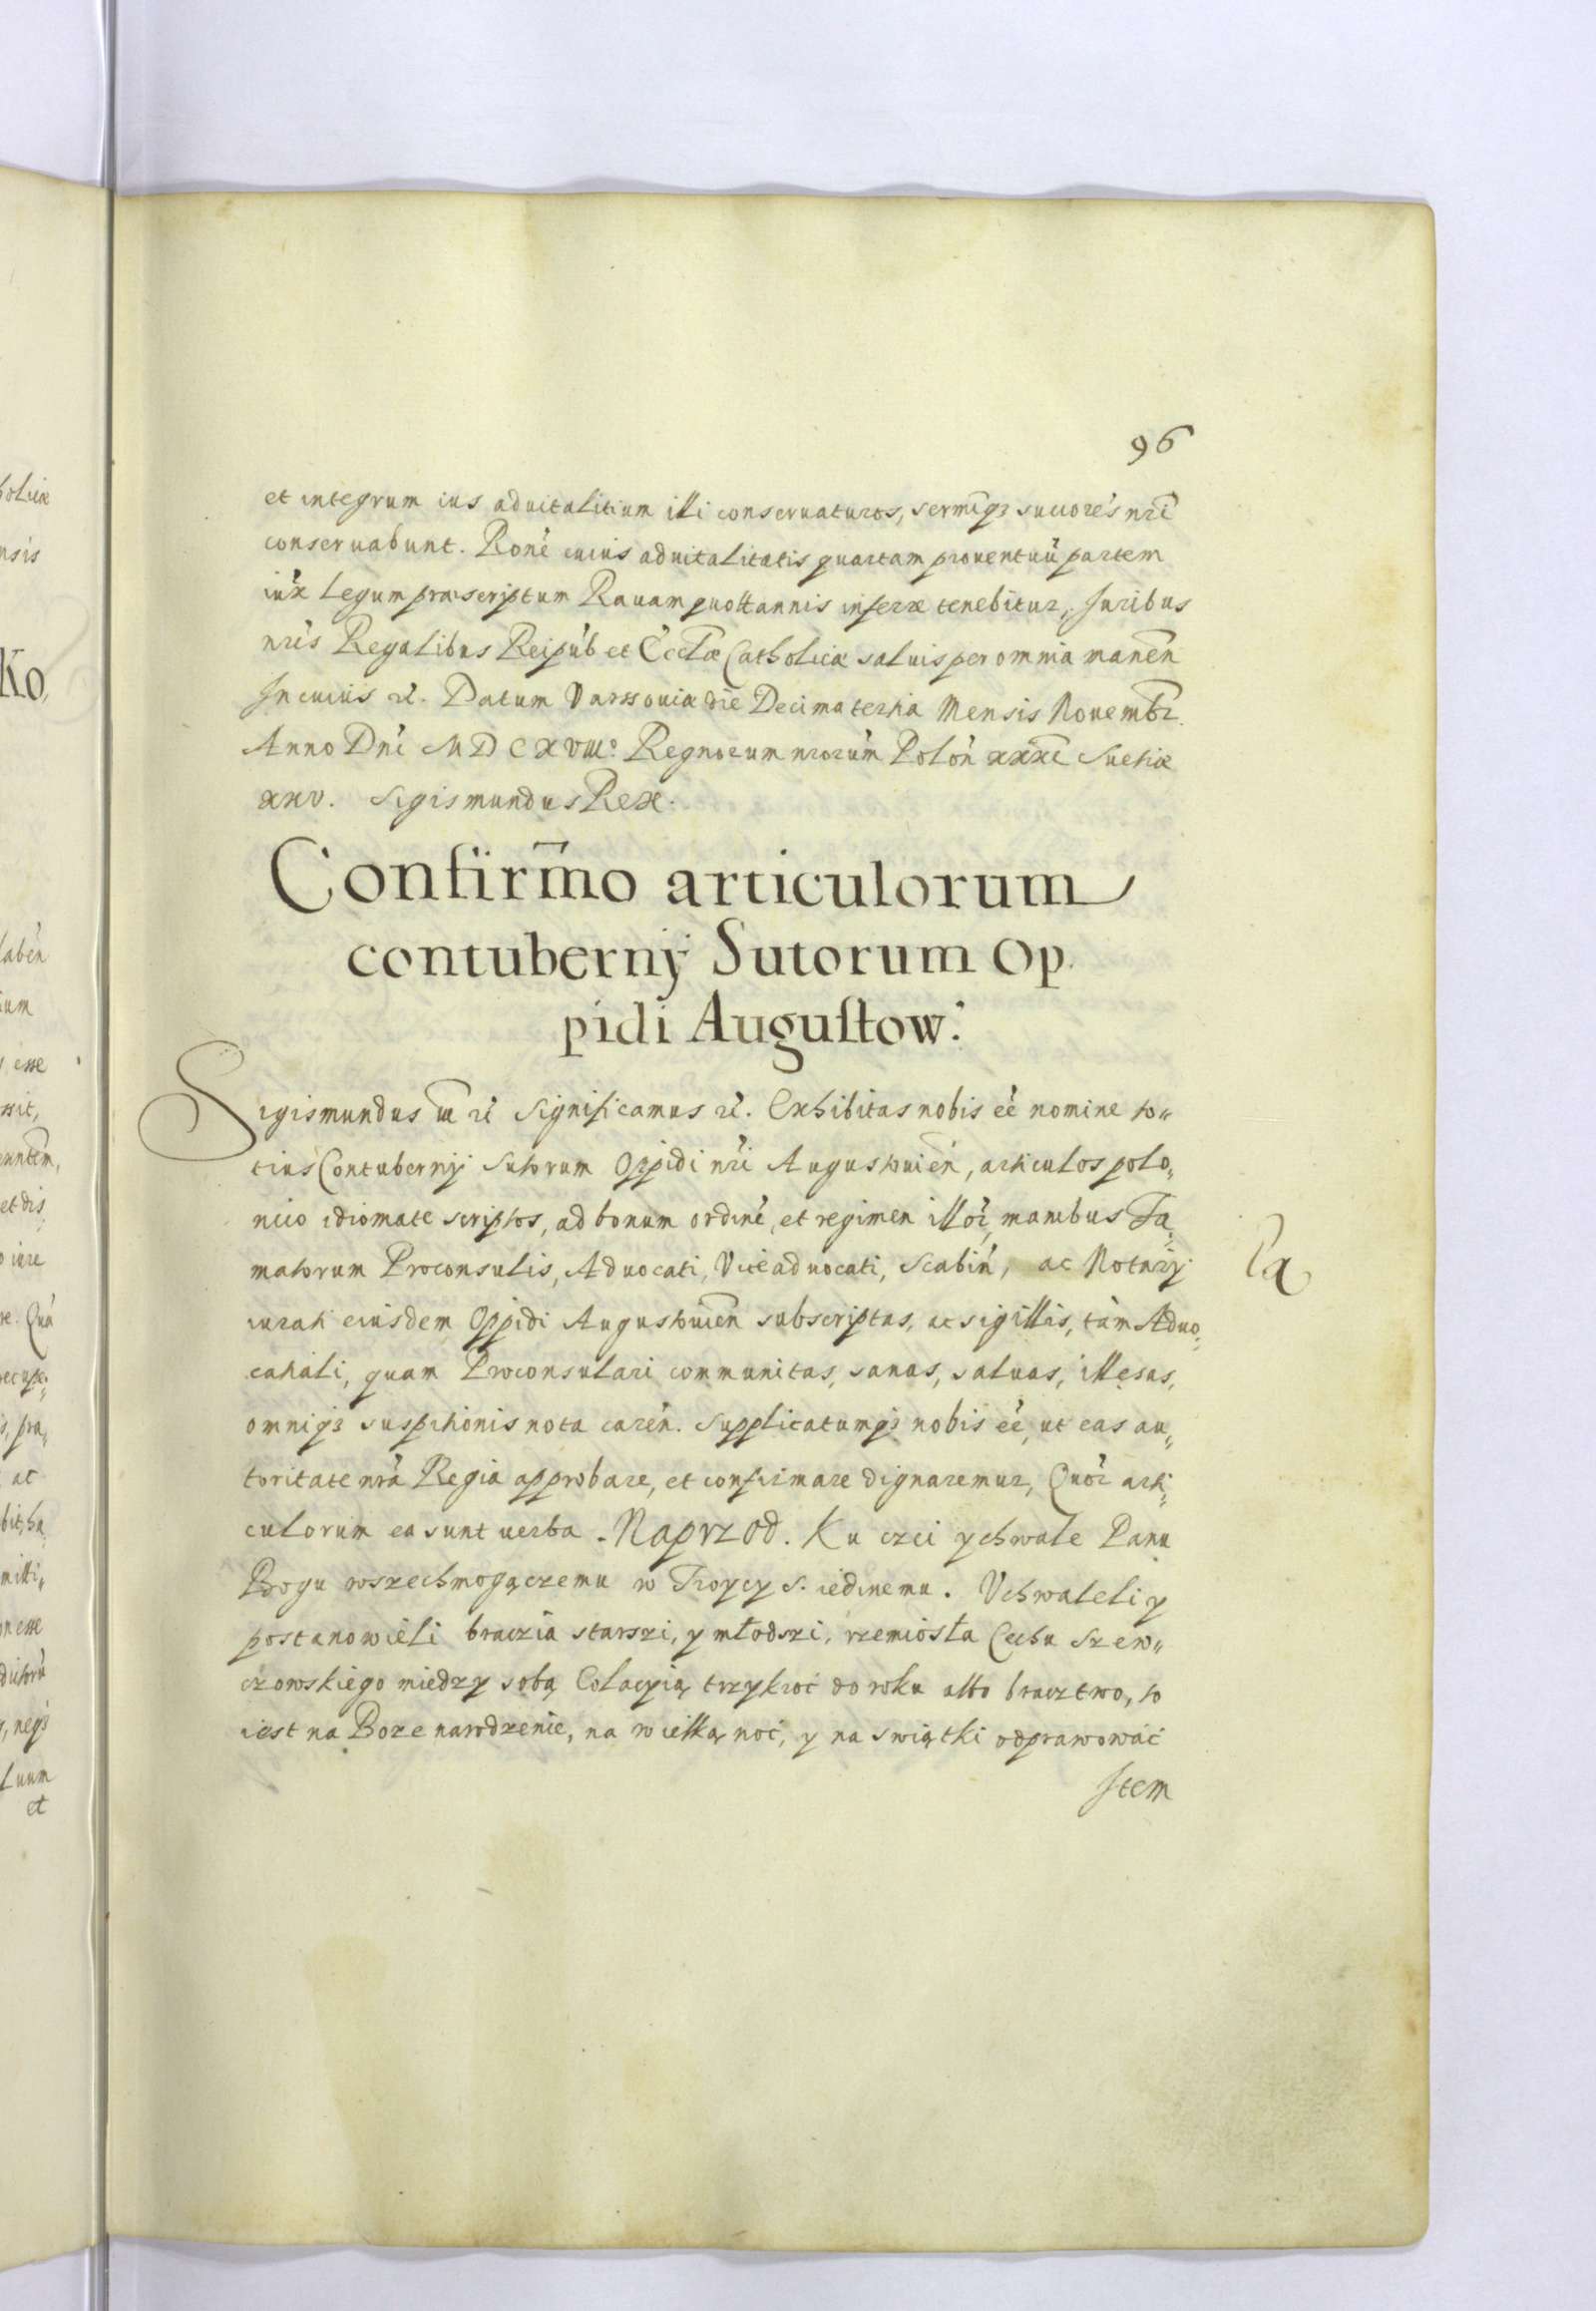 96
et integrum ius aduitalitium illi conseruaturos, sermiq3 succores nri
conseruabunt. Rone cuius aduitalitatis quartam prouentuu partem
iux Legum praescriptum Rauam quottannis inferre tenebitur, Juribus
nris Regalibus Reipub et Eccl̃æ Catholicæ saluis per omnia manen
In cuius rẽ. Datum Varssouiæ die Decima tertia Mensis Nouembr.
Anno Dni MDCXVIII° Regnorum nrorum Polon xxxi Suetiæ
xxv. Sigismundus Rex.
Confirmo articulorum
contubernij Sutorum Op.
pidi Augustow:
Sigismundus III rẽ Significamus rẽ. Exhibitas nobis eẽ nomine to„
tius Contubernij Sutorum Oppidi nri Augustouien, articulos polo„
nico idiomate scriptos, ad bonum ordine, et regimen illor, manibus Fa„
matorum Proconsulis, Aduocati, Viceaduocati, Scabin, ac Notarij
iurati eiusdem Oppidi Augustouien subscriptas, ac sigillis, tam Aduo„
catiali, quam Proconsulari communitas, sanas, saluas, illęsas,
omniq3 suspitionis nota caren. Supplicatumq3 nobis eẽ, ut eas au„
toritate nra Regia approbare, et confirmare dignaremur, Quor arti„
culorum ea sunt uerba. Naprzod. Ku czci y chwale Panu
Bogu wszechmogączemu w Troycy S. iedinemu. Vchwaleli y
postanowieli braczia starszi, y młodszi, rzemiosła Cechu Szew„
czowskiego miedzy sobą Colacyią trzykroć do roku albo bracztwo, to
iest na Boze narodzenie, na wielką noć, y na swiątki odprawować
Item